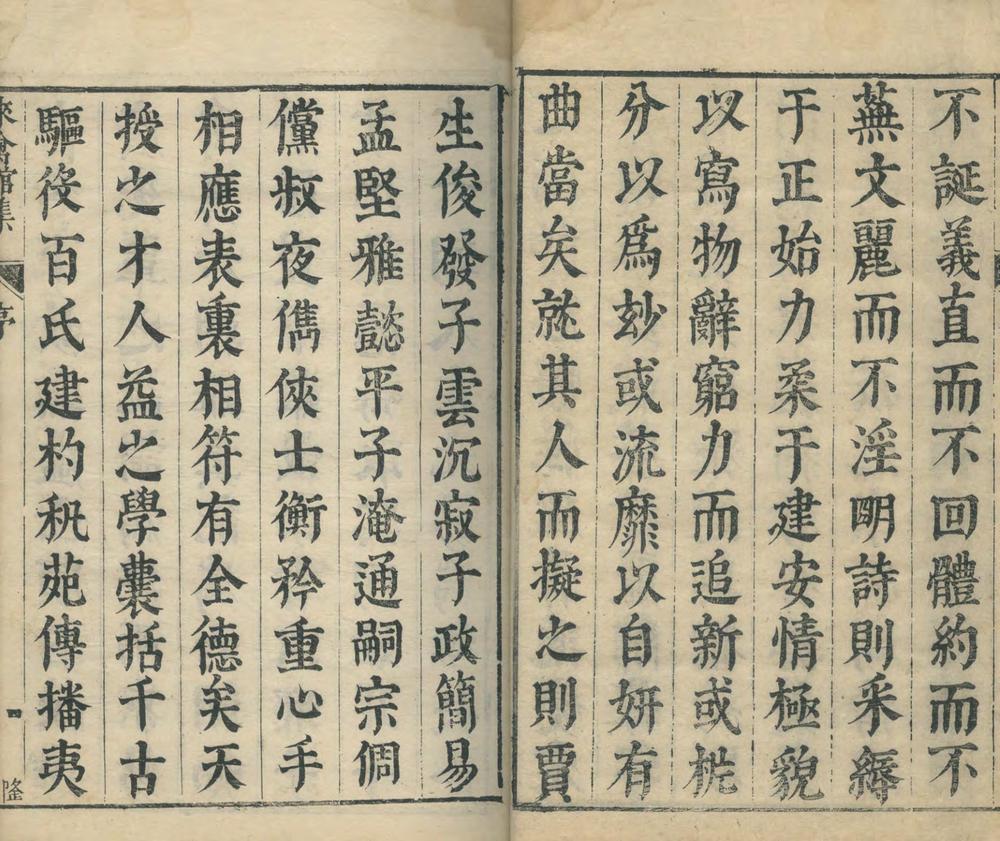 不誕義直而不回體約而不
蕪文麗而不淫明詩則釆縟
于正始力柔于建安情極貌
以寫物辭窮力而追新或枇
分以爲玅或流靡以自妍有
曲當矣就其人而擬之則賈
生俊發子雲沉寂子政簡易
孟堅雅懿平子淹通嗣宗倜
儻叔夜儁俠士衡矜重心手
相應表裏相符有全德矣天
授之才人益之學囊括千古
驅役百氏建杓秇苑傳播夷
來禽館集
序
四
隆